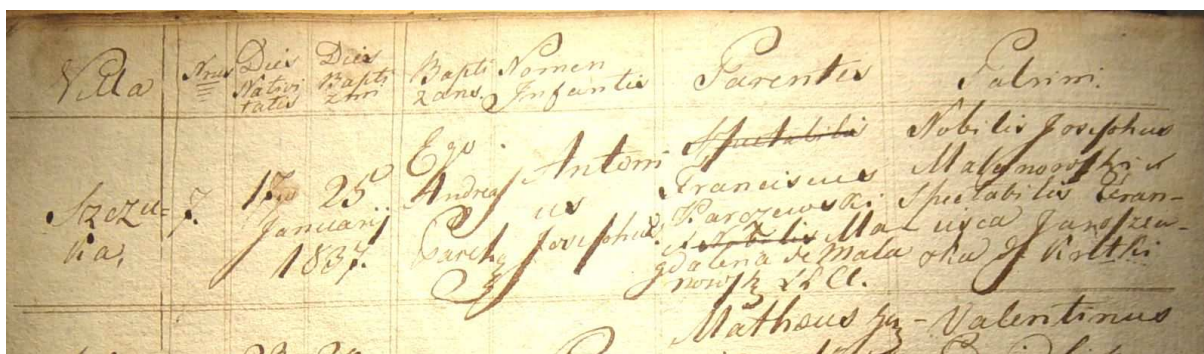 Villa
Nrus
Dies
Nativi
tatis
Dies
Bapti
zmi
Bapti
zans.
Nomen
Infantis
Parentes
Patrini.
Szczu-
ka,
7.
17
25.
Januarij
1837.
Ego
Andreas
Antoni
us
Josephus.
Spectabilis
Franciscus
Karczewski
et Nobilis Ma-
gdalena de Mala
nowsk
Nobilis Josephus
Malynowski et
Spectabilis Fran-
cisca Jaroszew-
ska de
Mathæus
Valentinus